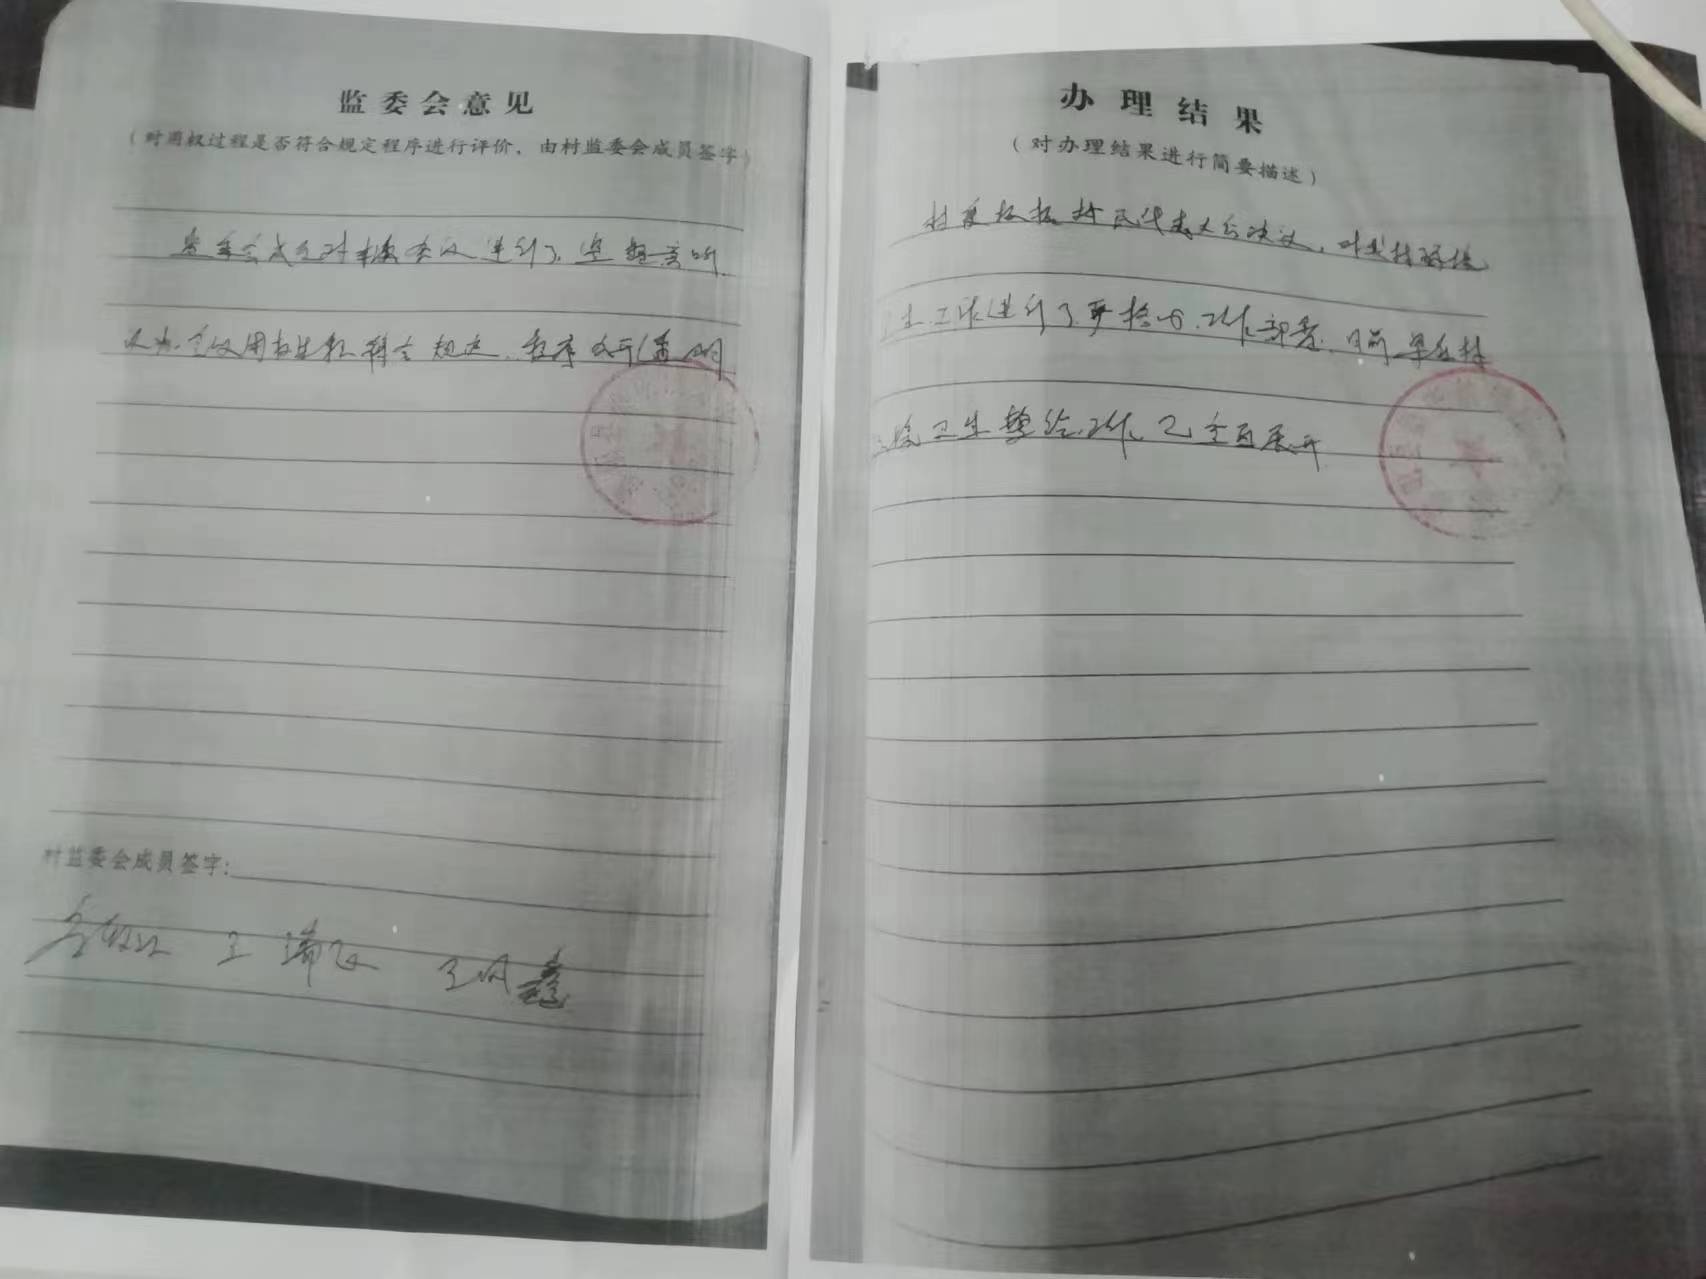 监委会意见
（对用权过程是否符合规定程序进行评价，由村监委会成员签字）
监委会成员对本次会议进行了
会议用权过程符合规定，程序公开透明
村监委会成员签字：
王瑞
王
办理结果
（对办理结果进行简要描述）
村委根据村民代表大会决议，对我村环境
卫生工作进行了严格的工作部署，目前
卫生整治工作已全面展开